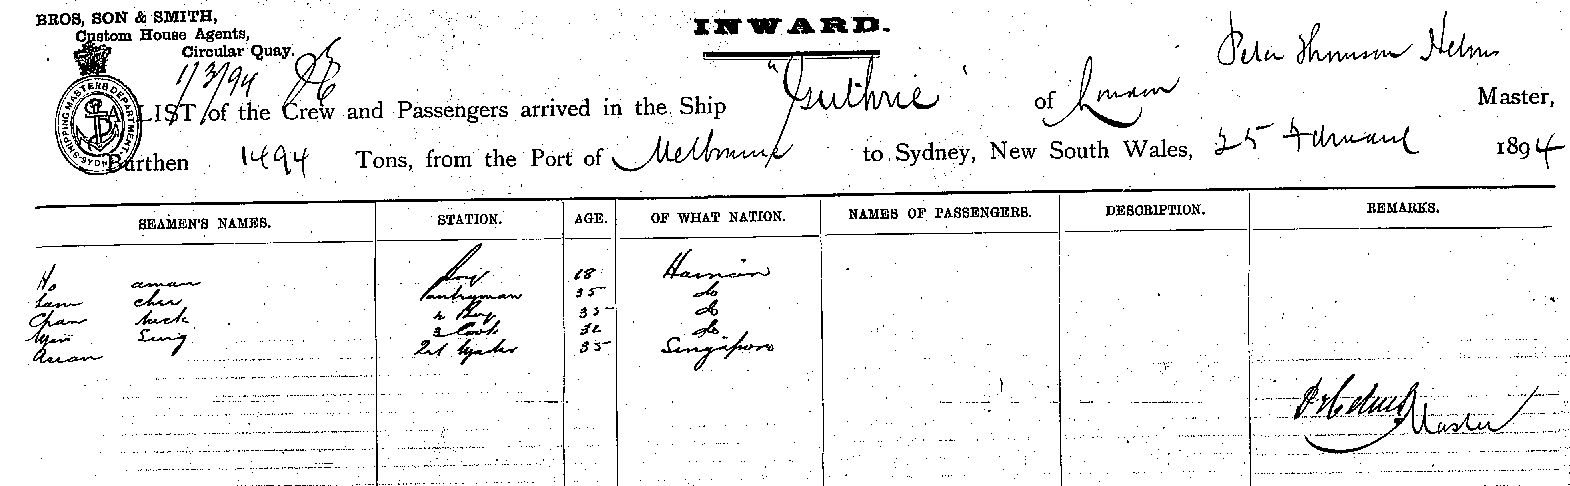 BROS, SON & SMITH,
Custom House Agents,
Circular Quay.
INWARD.
1/3/94
Peter Thomson Helms
A LIST of the Crew and Passengers arrived in the Ship "Guthrie" of London Master,
Burthen 1494 Tons, from the Port of Melbourne to Sydney, New South Wales, 25 February 1894
SHIPPING MASTERS DEPARTMENT SYDNEY
SEAMEN'S NAMES. STATION. AGE. OF WHAT NATION. NAMES OF PASSENGERS. DESCRIPTION. REMARKS.
Ho aman Boy 18 Hainan
Lam Pantryman 35 do
Chan Boy 35 do
Sing 2 Cook 32 do
Assan 35 Singapore
Master